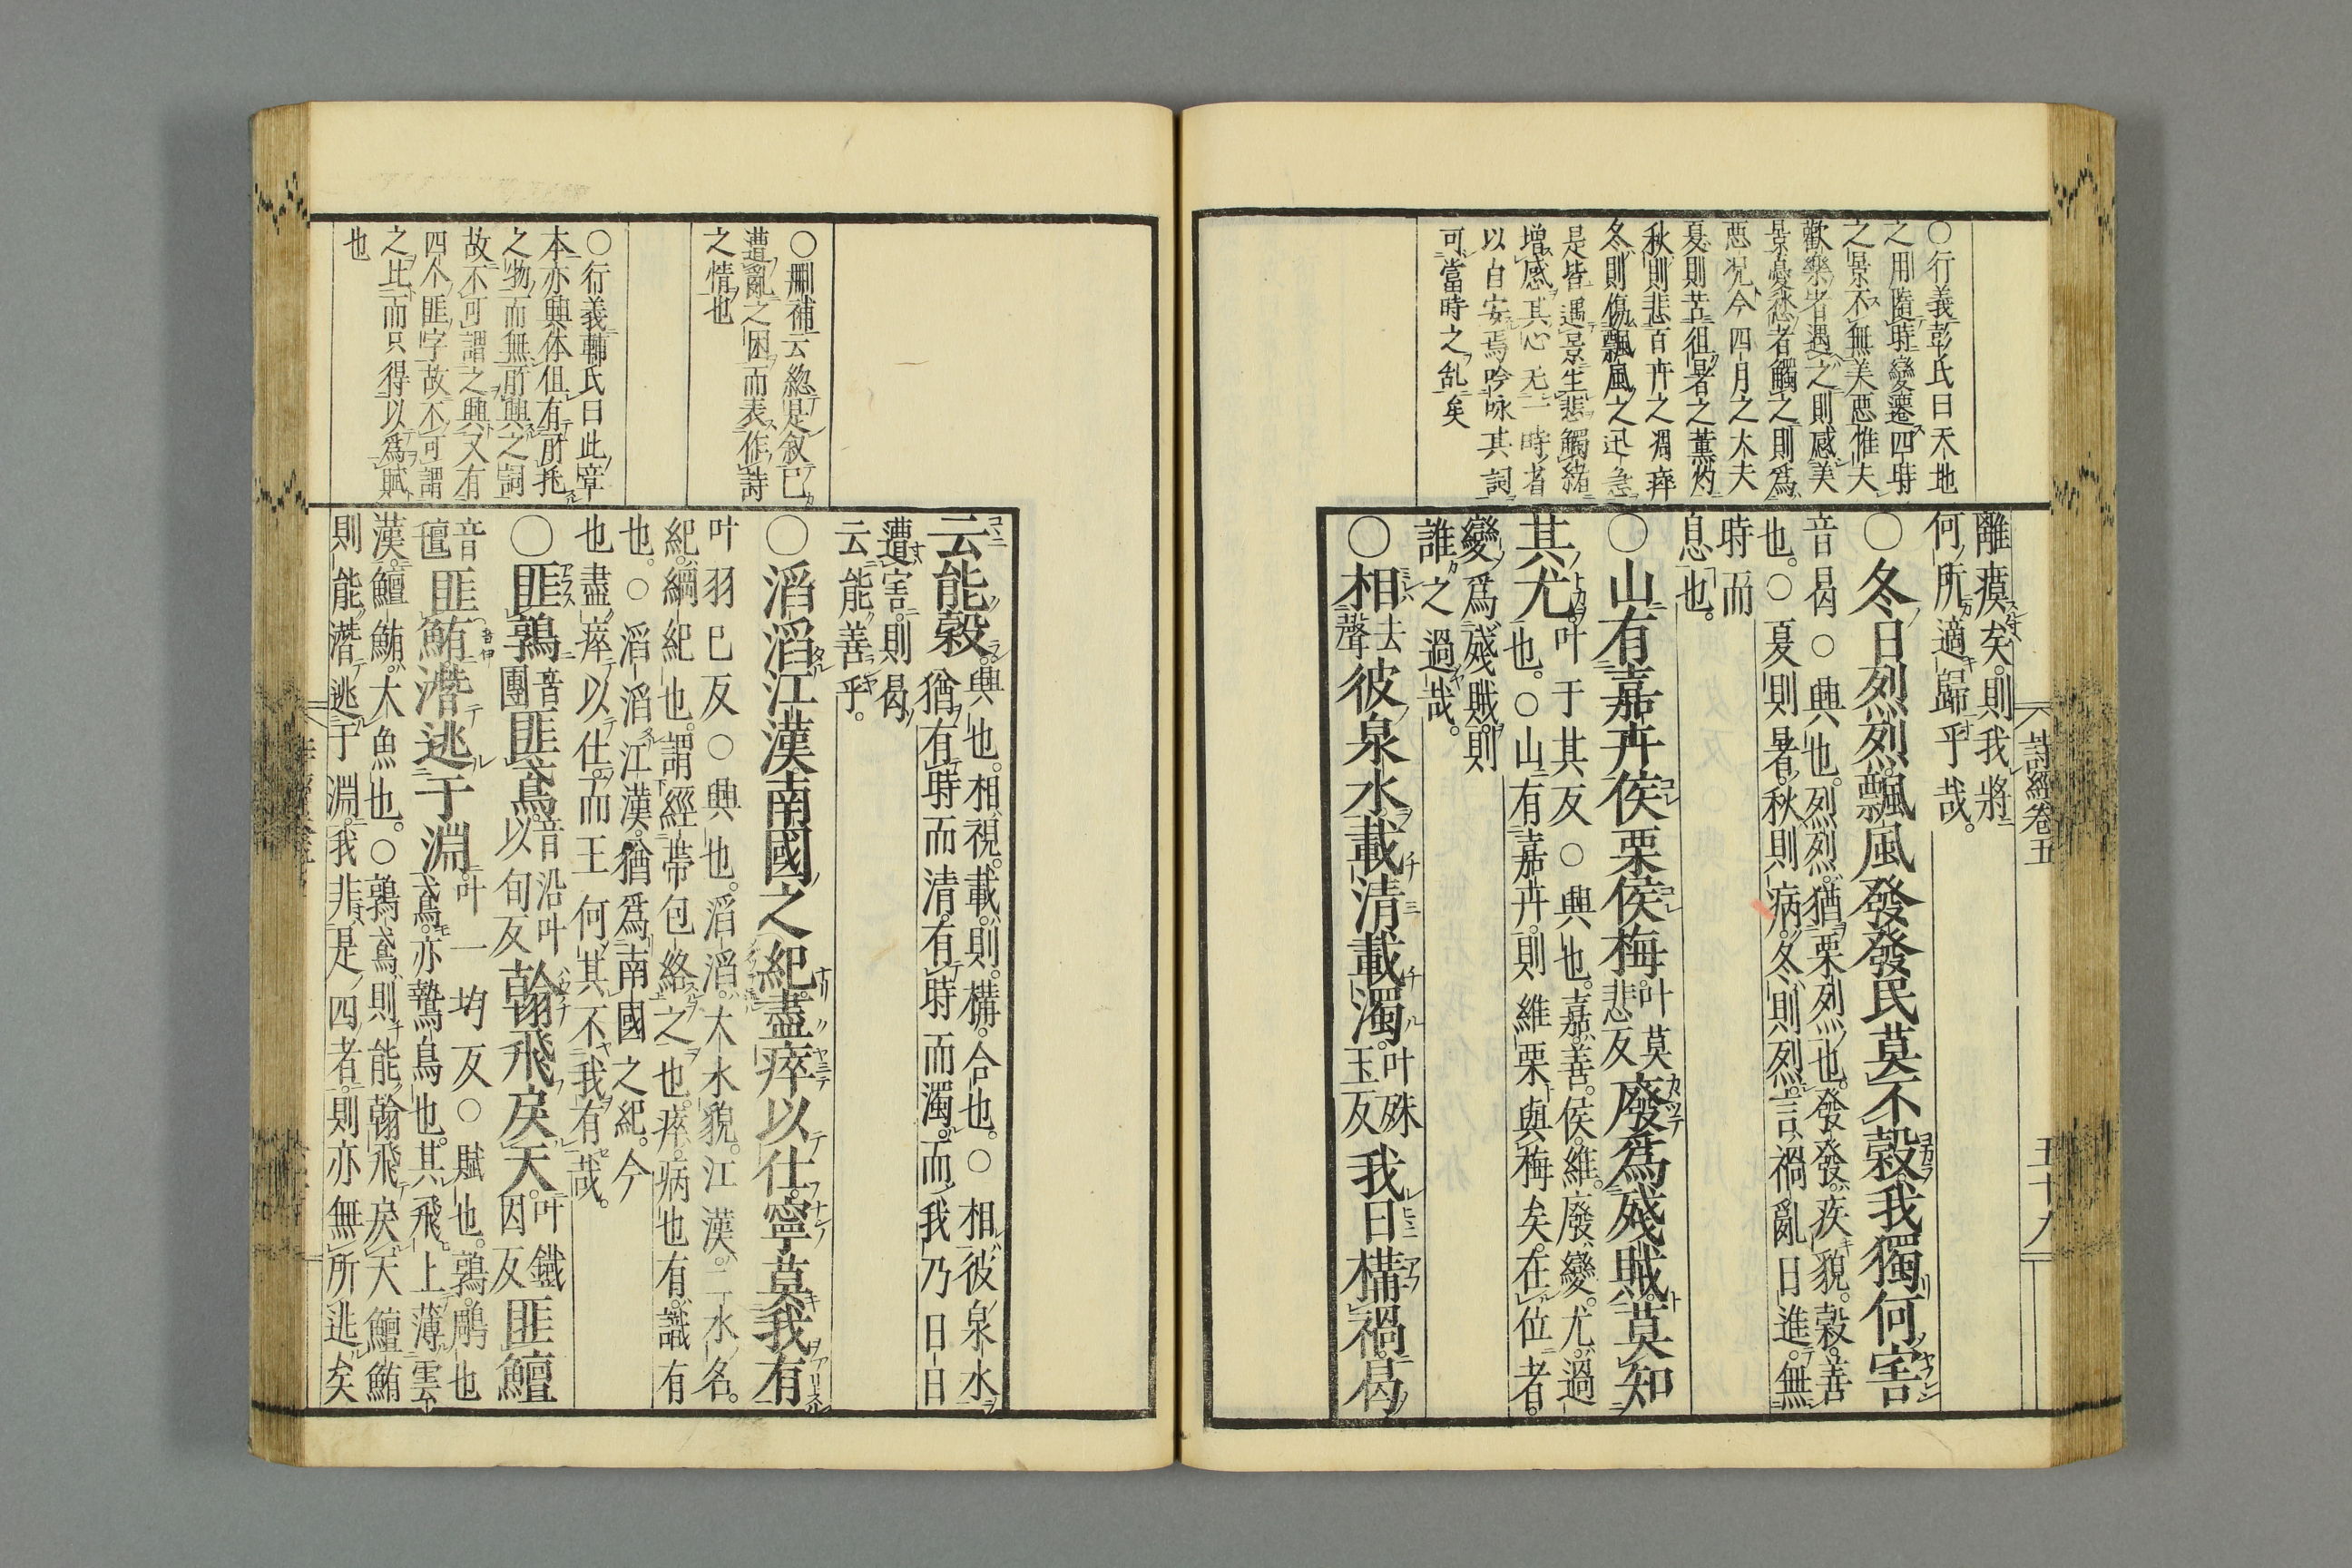 ○行義彭氏曰天地
之用隨時變遷四時
之景不無美惡惟夫
歡樂者遇之則感美
景憂愁者觸之則爲
惡况今四月之大夫
夏則苦徂暑之薫灼
秋則悲百卉之凋瘁
冬則傷飄風之迅急
是皆遇景生悲觸緒
增感其心无一時者
以自安焉吟咏其詞
可當時之乱矣
詩經卷五
五十九
離瘼矣則我將
何所適歸乎哉
○冬日烈烈飄風發發民莫不穀我獨何害
音曷○興也烈烈猶栗烈也發發疾貌穀善
也○夏則暑秋則病冬則烈言禍亂日進無
時而
息也
○山有嘉卉侯栗侯梅叶莫
悲反廢爲殘賊莫知
其尤叶于其反○興也嘉善侯維廢變尤過
也○山有嘉卉則維栗與梅矣在位者
變爲殘賊則
誰之過哉
○相去
聲彼泉水載清載濁叶殊
玉反我日構禍曷
○刪補云緫是叙已
遭亂之困而表作詩
之情也
○行義輔氏曰此章
本亦興体但有所托
之物而無所興之詞
故不可謂之興又有
四个匪字故不可謂
之比而只得以爲賦
也
云能穀興也相視載則構合也○相彼泉水
猶有時而清有時而濁而我乃日日
遭害則曷
云能善乎
○滔滔江漢南國之紀盡瘁以仕寧莫我有
叶羽已反○興也滔滔大水貌江漢二水名
紀綱紀也謂經帶包絡之也瘁病也有識有
也○滔滔江漢猶爲南國之紀今
也盡瘁以仕而王何其不我有哉
○匪鶉音
團匪鳶音沿叶
以旬反翰飛戾天叶鐵
因反匪鱣
音
亶匪鮪潛逃于淵叶一均反○賦也鶉鵰也
鳶亦鷙鳥也其飛上薄雲
漢鱣鮪大魚也○鶉鳶則能翰飛戾天鱣鮪
則能潛逃于淵我非是四者則亦無所逃矣